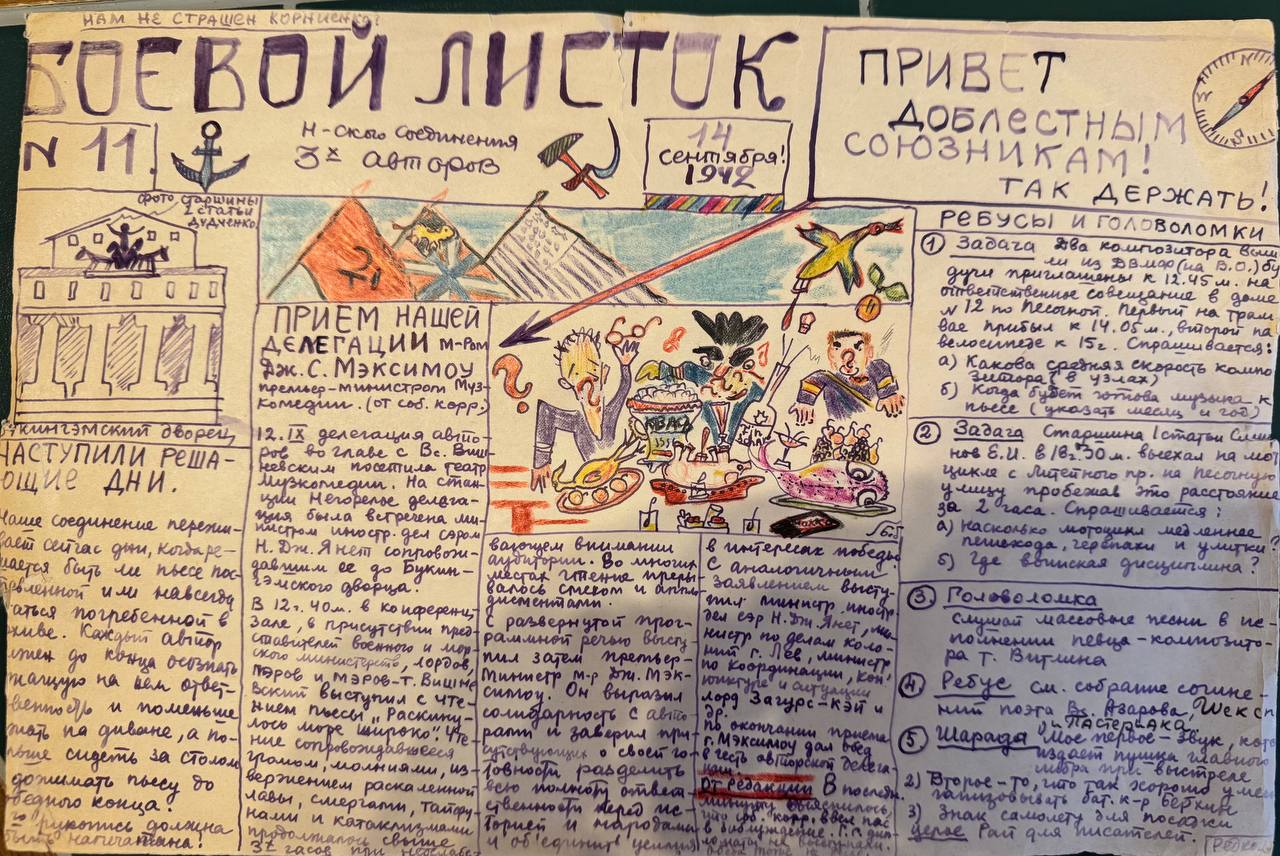 НАМ НЕ СТРАШЕН КОРНИЕНКО!
БОЕВОЙ ЛИСТОК
N 11.
Н-ского соединения
3х авторов
14
сентября!
1942
ПРИВЕТ
ДОБЛЕСТНЫМ
СОЮЗНИКАМ!
ТАК ДЕРЖАТЬ!
фото старшины
2 статьи
Дудченко.
Букингэмский дворец
НАСТУПИЛИ РЕША-
ЮЩИЕ ДНИ.
Наше соединение пережи-
вает сейчас дни, когда ре-
шается быть ли пьесе пос-
тавленной или навсегда
остаться погребенной в
архиве. Каждый автор
должен до конца осознать
лежащую на нем ответ-
ственность и поменьше
лежать на диване, а по-
больше сидеть за столом
дожимать пьесу до
победного конца.
рукопись должна
быть напечатана!
ПРИЕМ НАШЕЙ
ДЕЛЕГАЦИИ М-РОМ
ДЖ. С. МЭКСИМОУ
премьер-министром Муз-
комедии. (от соб. корр.)
12.IX делегация авто-
ров во главе с Вс. Виш-
невским посетила театр
Музкомедии. На стан-
ции Негорелое делега-
ция была встречена ми-
нистром иностр. дел сэром
Н. Дж. Янет сопровож-
давшим ее до Букин-
гэмского дворца.
В 12 г. 40 м. в конференц
зале, в присутствии пред-
ставителей военного и мор-
ского министерств, лордов,
пэров и мэров - т. Вишне
вский выступил с чте-
нием пьесы "Раскину-
лось море широко". Чте-
ние сопровождавшееся
громом, молниями, из-
вержением раскаленной
лавы, смерчами, тайфу-
нами и катаклизмами
продолжалось свыше
3х часов при неослабе-
КВАС
1358
вающем внимании
аудитории. Во многих
местах чтение преры-
валось смехом и апло-
дисментами.
С развернутой прог-
раммной речью высту-
пил затем премьер-
министр м-р Дж. Мэк-
симоу. Он выразил
солидарность с авто-
рами и заверил при
сутствующих о своей го-
товности разделить
всю полноту ответ-
ственности перед ис-
торией и народами
и объединит усилия
в интересах победы.
С аналогичным
заявлением высту-
пил министр иностр
дел сэр Н. Дж. Янет, ми-
нистр по делам коло-
ний г. Лев, министр
по координации, кон-
юнктуре и ситуации
лорд Загурс-Кэй и
др.
По окончании приема
г. Мэксимоу дал обед
в честь авторской делега-
ции.
От редакции В послед.
минуту выяснилось,
что соб. корр. ввел нас
в заблуждение.
РЕБУСЫ И ГОЛОВОЛОМКИ
1 Задача Два композитора выш
ли из ДВМФ (на В.О.) бу
дучи приглашены к 12.45 м. на
ответственное совещание в доме
N 12 по Песочной. Первый на трам
вае прибыл к 14.05 м., второй на
велосипеде к 15 г. Спрашивается:
а) Какова средняя скорость компо
зитора (в узлах)
б) Когда будет готова музыка к
пьесе (указать месяц и год)
2 Задача Старшина 1 статьи Смир
нов Е.И. в 18 г. 30 м. выехал на мот
цикле с Литейного пр. на Песочную
улицу пробежав это расстояние
за 2 часа. Спрашивается:
а) насколько мотоцикл медленнее
пешехода, черепахи и улитки?
б) Где воинская дисциплина?
3 Головоломка
слушай массовые песни в ис-
полнении певца-композито-
ра т. Витлина
4 Ребус см. собрание сочине-
ний поэта Вс. Азарова, Шексп
и Пастернака
5 Шарада Мое первое - звук, кото
издает пушка главного
калибра при выстреле
2) Второе - то, что так хорошо умел
организовывать бат. к-р Верхин
3) Знак самолету для посадки
Целое Рай для писателей.